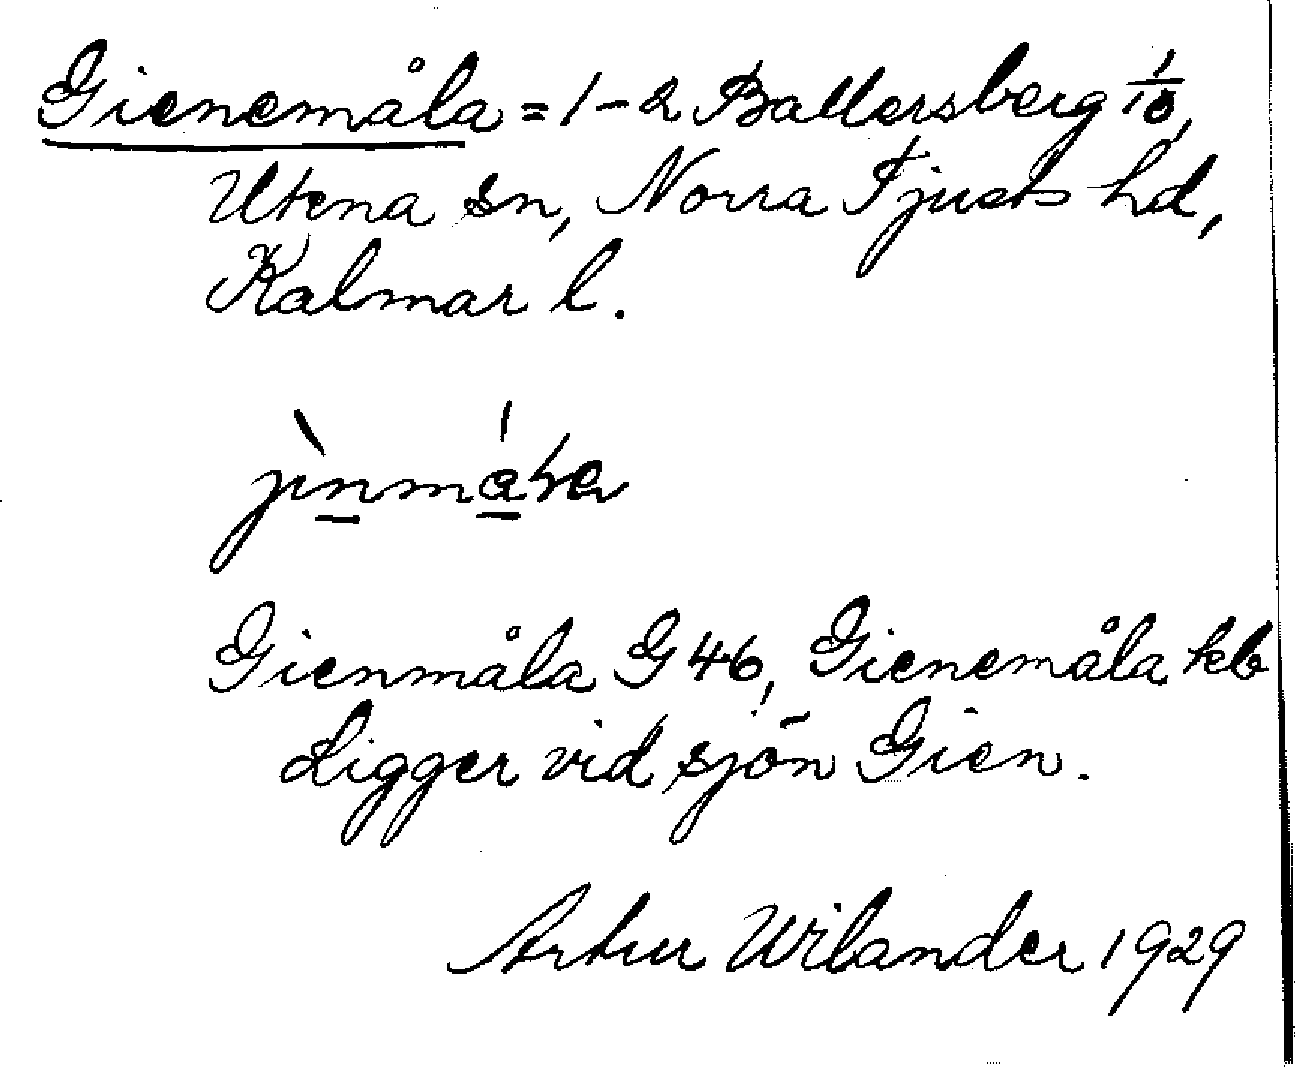 Gienemåla = 1-2 Ballersberg 1/10,
Ukna sn, Norra Tjusts hd,
Kalmar l.
jìnmåla
Gienmåla G 46, Gienemåla kb
Ligger vid sjön Gien.
Artur Wilander 1929